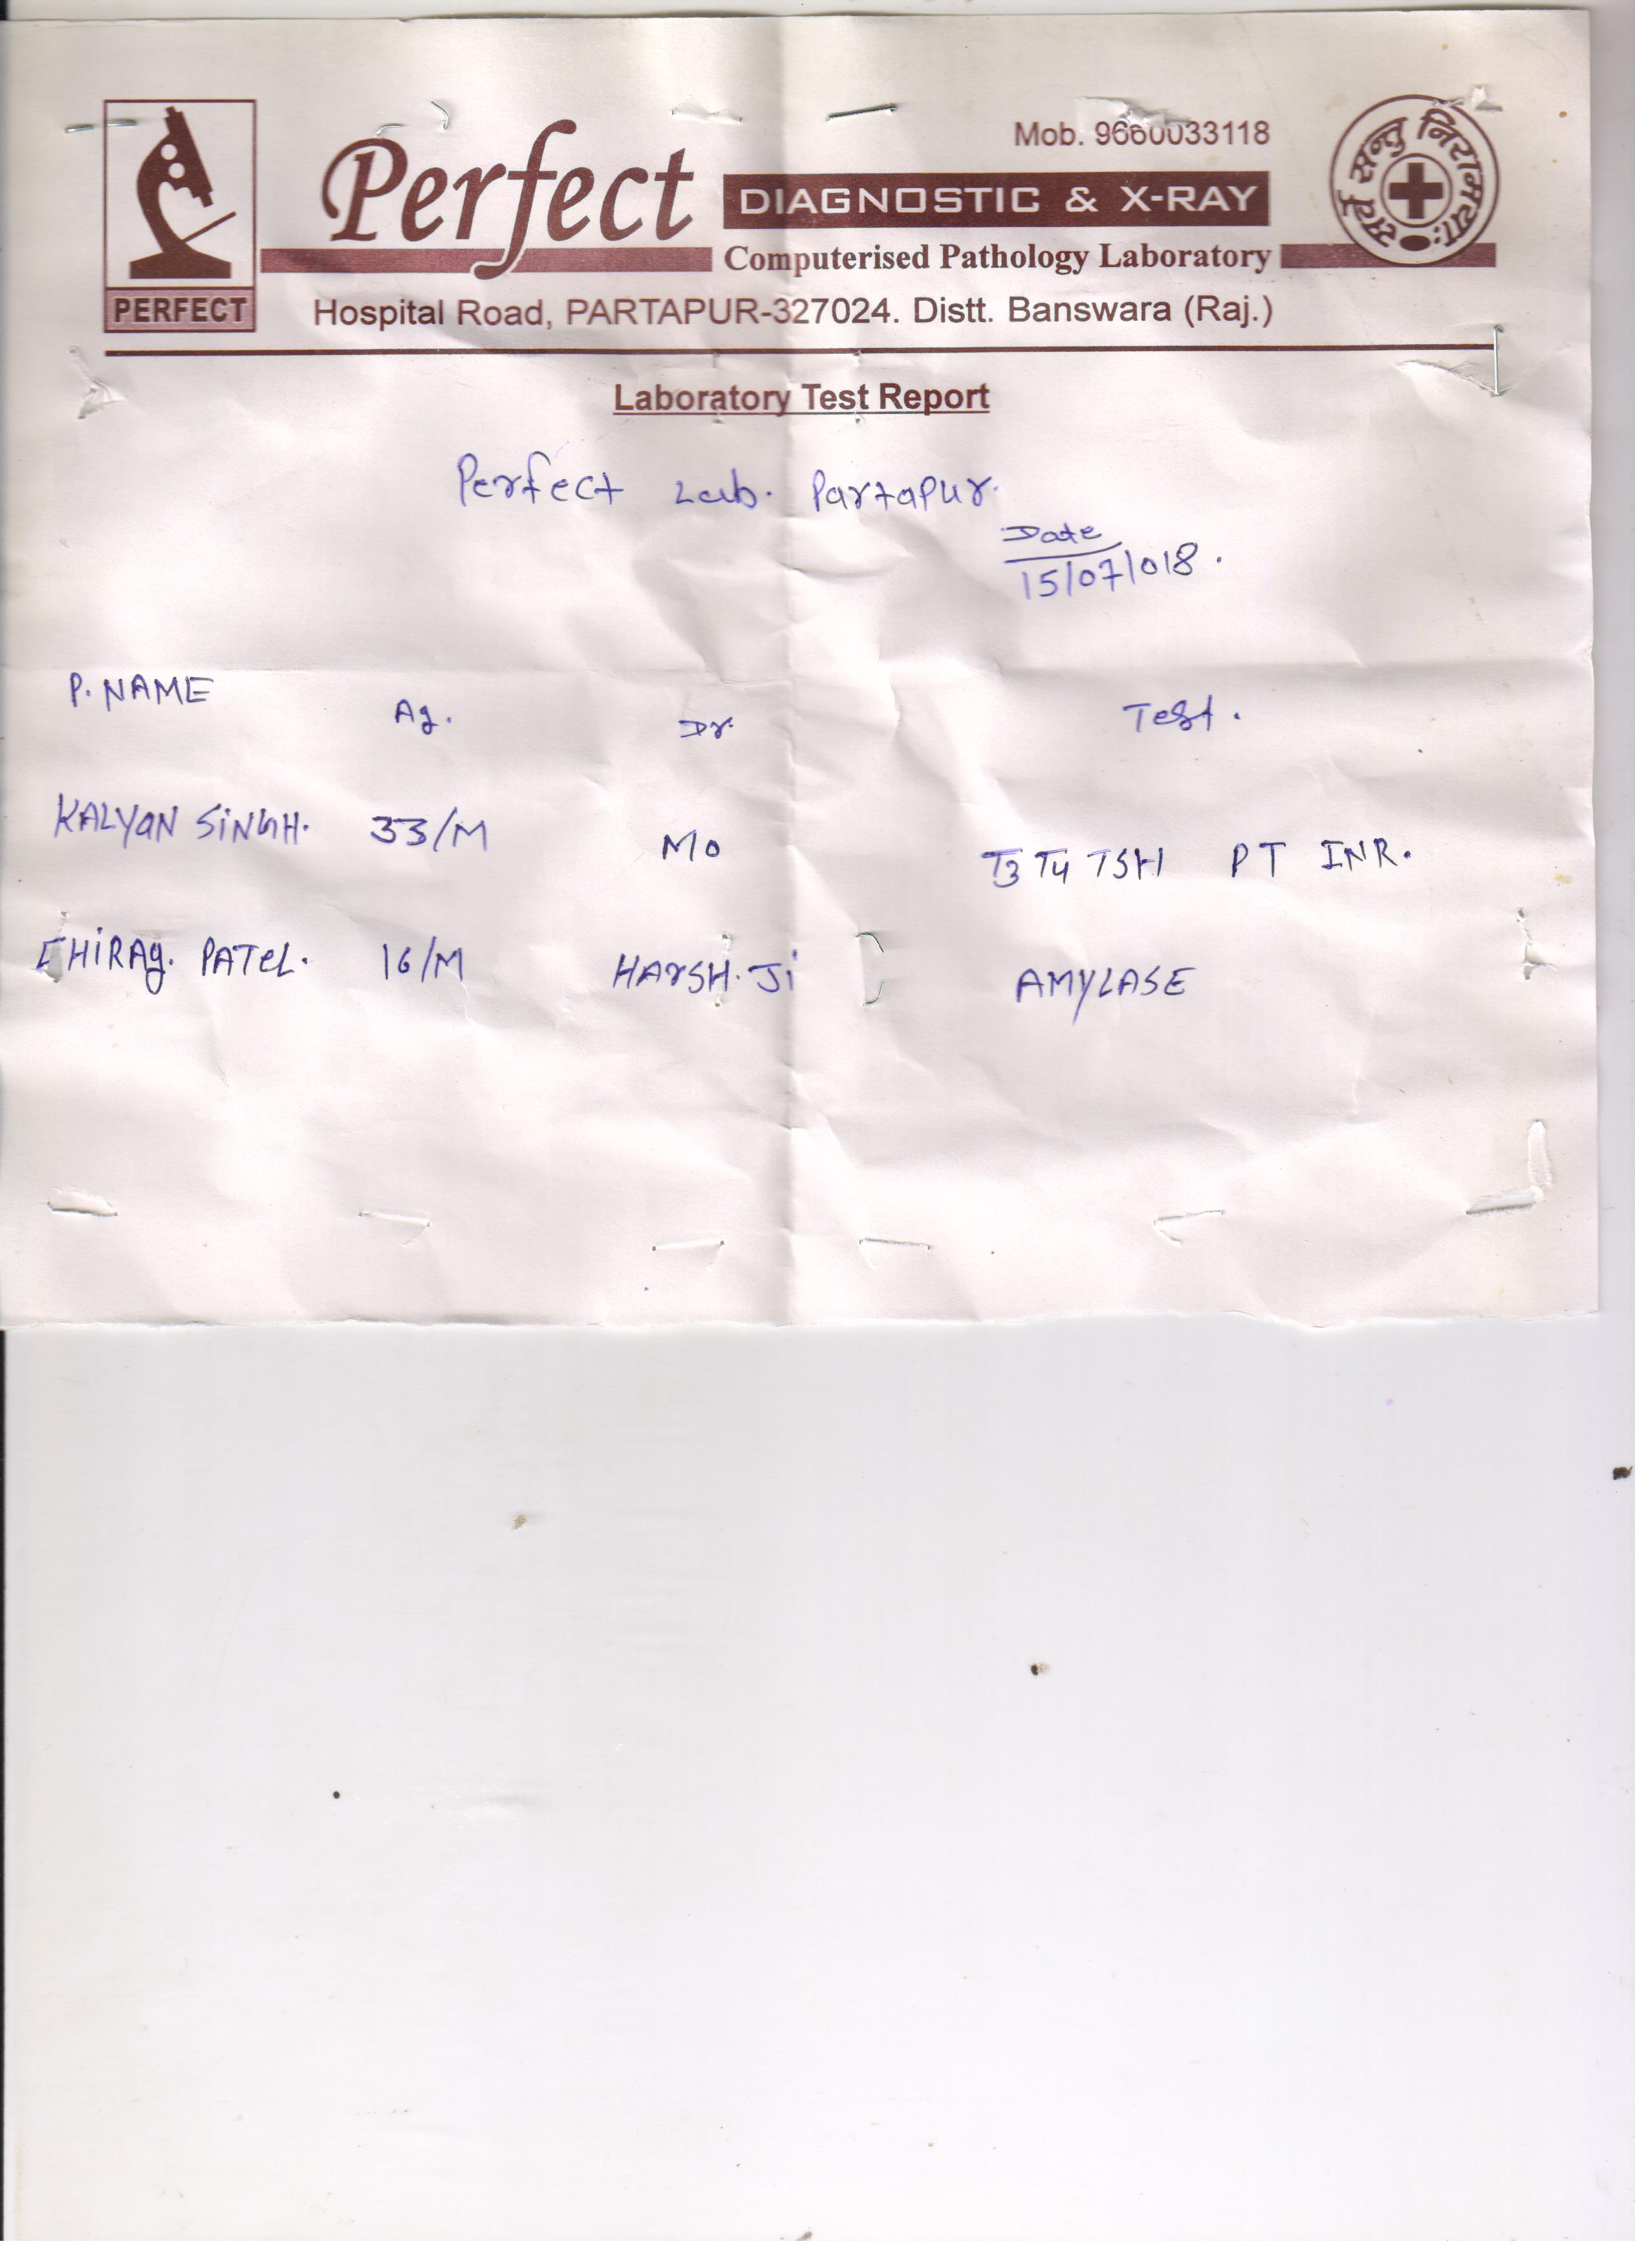 Mob. 9660033118
Perfect DIAGNOSTIC & X-RAY
सर्वे सन्तु निरामयाः
Computerised Pathology Laboratory
PERFECT
Hospital Road, PARTAPUR-327024. Distt. Banswara (Raj.)
Laboratory Test Report
Perfect Lab. Partapur.
Date
15/07/018.
P. NAME Ag. Dr. Test.
KALYAN SINGH. 33/M MO T3 T4 TSH PT INR.
CHIRAG. PATEL. 16/M HARSH. Ji AMYLASE